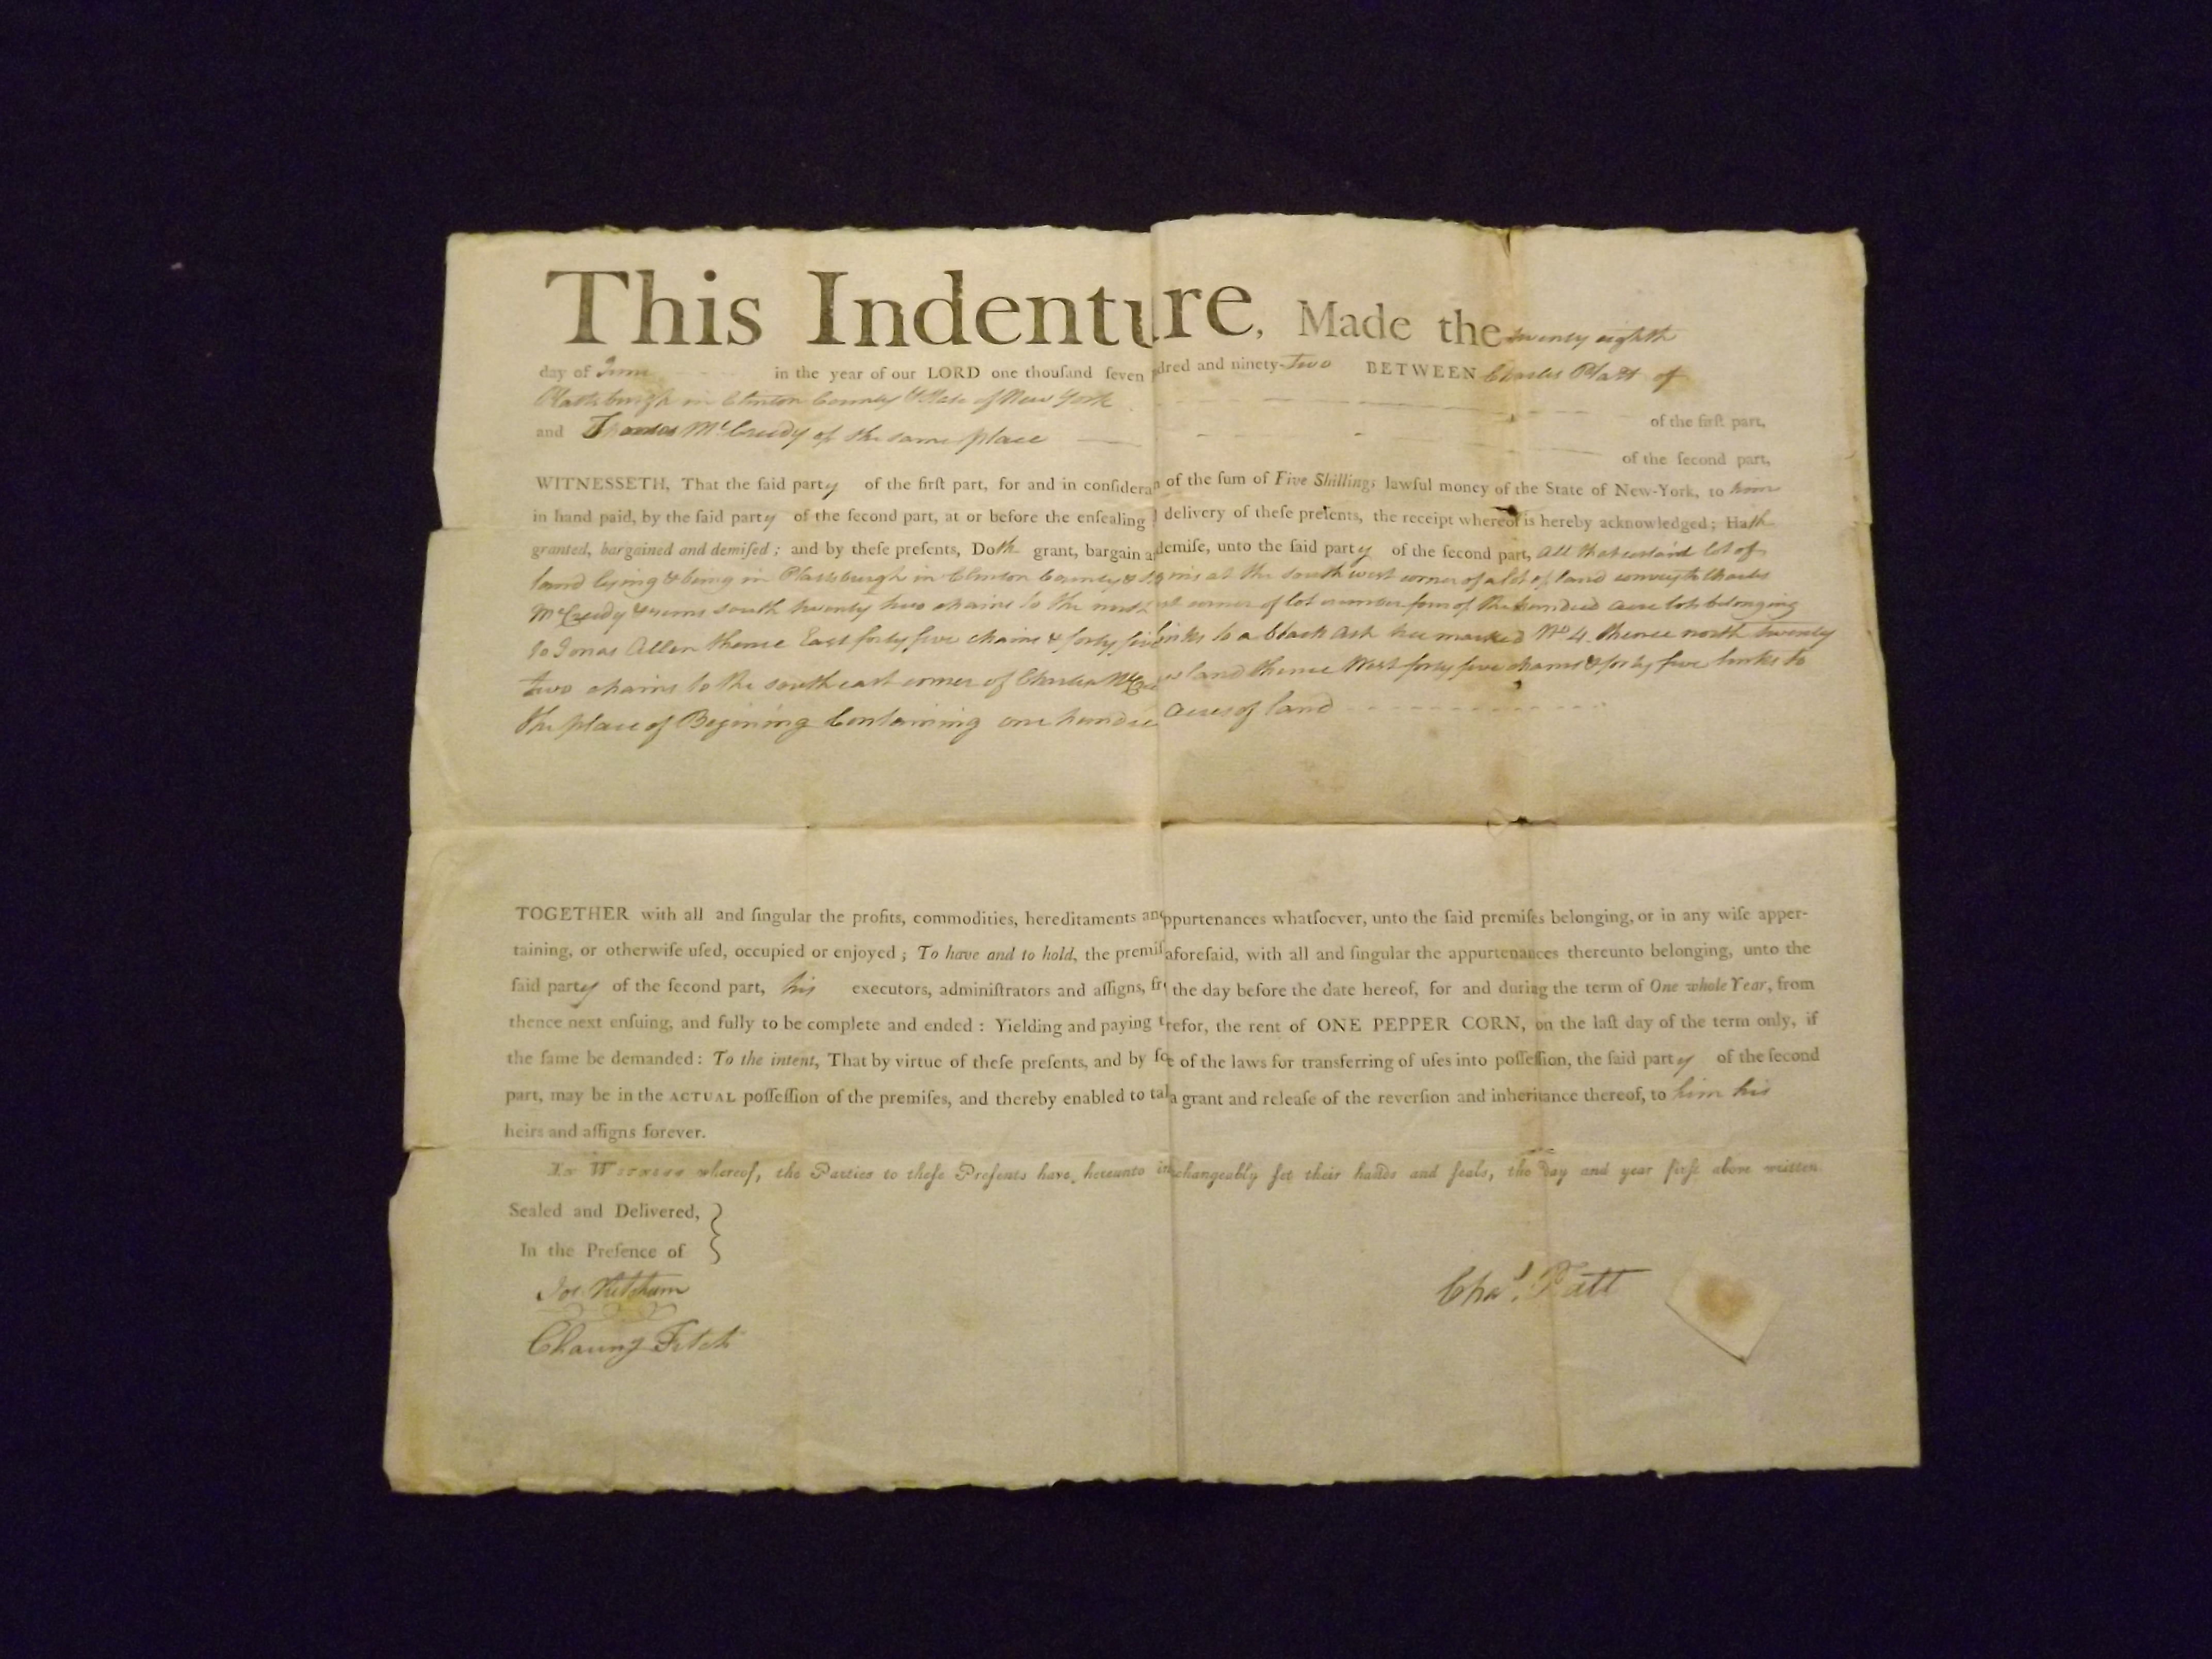 This Indenture, Made the twenty eighth
day of June in the year of our LORD one thouſand ſeven dred and ninety-Two BETWEEN Charles Platt of
Plattsburgh in Clinton County & State of New York of the firſt part,
and McCreedy of the same place of the ſecond part,
WITNESSETH, That the ſaid party of the firſt part, for and in conſidera n of the ſum of Five Shillings lawful money of the State of New-York, to him
in hand paid, by the ſaid party of the ſecond part, at or before the enſealing d delivery of theſe preſents, the receipt whereof is hereby acknowledged; Hath
granted, bargained and demiſed; and by theſe preſents, Doth grant, bargain a demiſe, unto the ſaid party of the ſecond part, all that certain lot of
land lying & being in Plattsburgh in Clinton County & ins at the south west corner of a lot of land convey to Charles
McCreedy & runs south twenty two chains to the north corner of lot number four of the hundred acre lots belonging
to Jonas Allen thence East forty five chains & forty five links to a black ash tree marked No 4. thence north twenty
two chains to the south east corner of Charles McCre s land thence West forty five chains & forty five links to
the place of Begining Containing one hundre acres of land
TOGETHER with all and ſingular the profits, commodities, hereditaments and ppurtenances whatſoever, unto the ſaid premiſes belonging, or in any wiſe apper-
taining, or otherwiſe uſed, occupied or enjoyed; To have and to hold, the premiſ aforeſaid, with all and ſingular the appurtenances thereunto belonging, unto the
ſaid party of the ſecond part, his executors, adminiſtrators and aſſigns, fr the day before the date hereof, for and during the term of One whole Year, from
thence next enſuing, and fully to be complete and ended: Yielding and paying t refor, the rent of ONE PEPPER CORN, on the laſt day of the term only, if
the ſame be demanded: To the intent, That by virtue of theſe preſents, and by fo e of the laws for transferring of uſes into poſſeſſion, the ſaid party of the ſecond
part, may be in the ACTUAL poſſeſſion of the premiſes, and thereby enabled to ta a grant and releaſe of the reverſion and inheritance thereof, to him his
heirs and aſſigns forever.
In Witneſs whereof, the Parties to theſe Preſents have hereunto in changeably ſet their hands and ſeals, the Day and year firſt above written.
Sealed and Delivered,
In the Preſence of
Jos Ketcham
Chas. Platt
Chauny Fitch